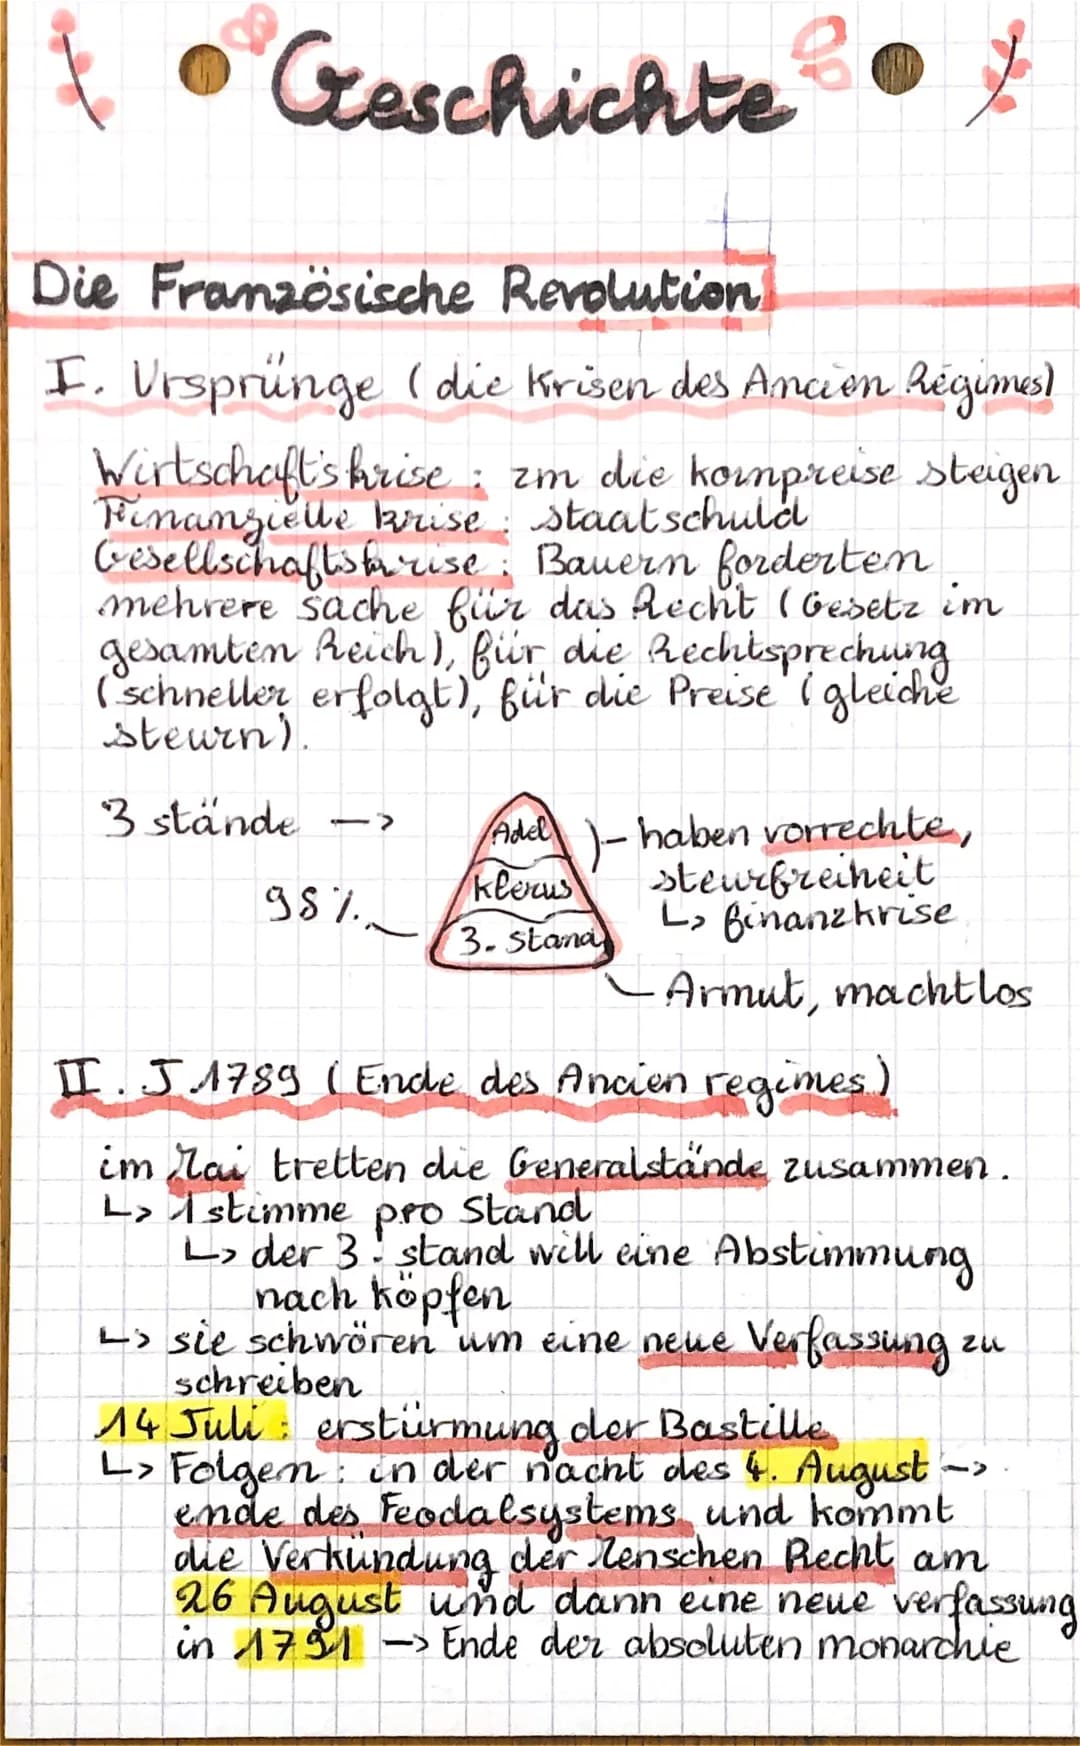 Geschichte
Die Französische Revolution
I. Ursprünge (die Krisen des Ancien Régimes)
Wirtschaft'skrise : zm die kornpreise steigen
Finanzielle krise : staatschuld
Gesellschaftskrise : Bauern forderten
mehrere sache für das Recht (Gesetz im
gesamten Reich), für die Rechtsprechung
(schneller erfolgt), für die Preise (gleiche
steurn).
3 stände -->
Adel
)- haben vorrechte,
klerus
steurfreiheit
98%
↳ finanzkrise
3. Stand
Armut, machtlos
II. J 1789 (Ende des Ancien regimes)
im Mai tretten die Generalstände zusammen.
↳ 1 stimme pro Stand
↳ der 3. stand will eine Abstimmung
nach köpfen
↳ sie schwören um eine neue Verfassung zu
schreiben
14 Juli : erstürmung der Bastille
↳ Folgen : in der nacht des 4. August -->
ende des Feodalsystems und kommt
die Verkündung der Menschen Recht am
26 August und dann eine neue verfassung
in 1791 --> Ende der absoluten monarchie